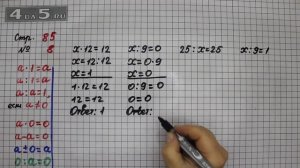 4DS.RU
Стр. 85
№ 8
a·1=a
1·a=a
a:a=1
если a≠0
a·0=0
a-a=0
a±0=a
0:a=0
x·12=12
x=12:12
x=1
1·12=12
12=12
Ответ: 1
x:9=0
x=0·9
x=0
0:9=0
0=0
Ответ:
25:x=25
x:9=1